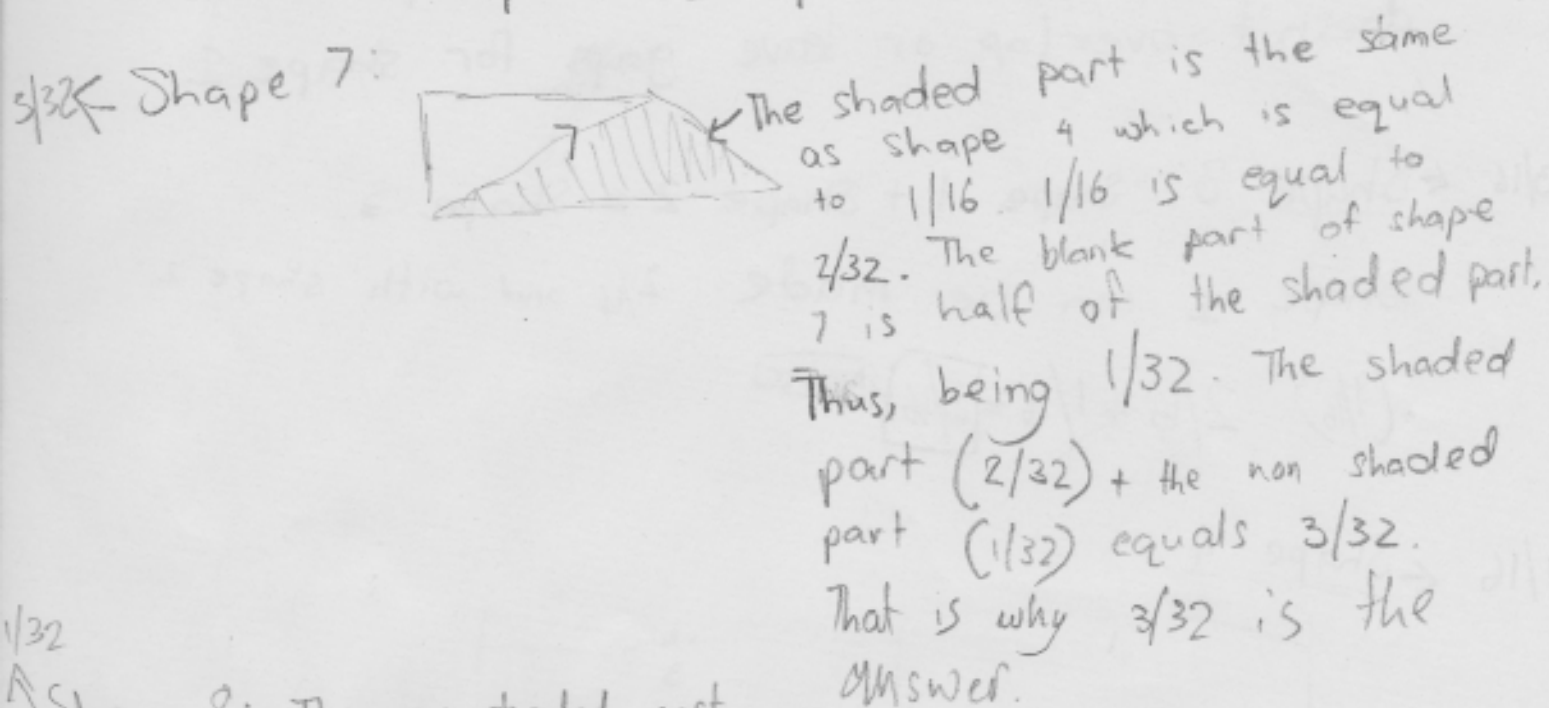 3/32 ← Shape 7:
7
The shaded part is the same
as shape 4 which is equal
to 1/16. 1/16 is equal to
2/32. The blank part of shape
7 is half of the shaded part.
Thus, being 1/32. The shaded
part (2/32) + the non shaded
part (1/32) equals 3/32.
That is why 3/32 is the
answer.
1/32